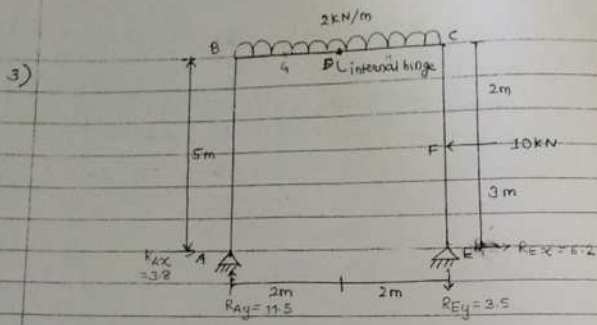 3)
2kN/m
B
C
4
D
internal hinge
2m
5m
F
10kN
3m
RAX
=3.8
A
E
REX=6.2
2m
2m
RAy=11.5
REy=3.5